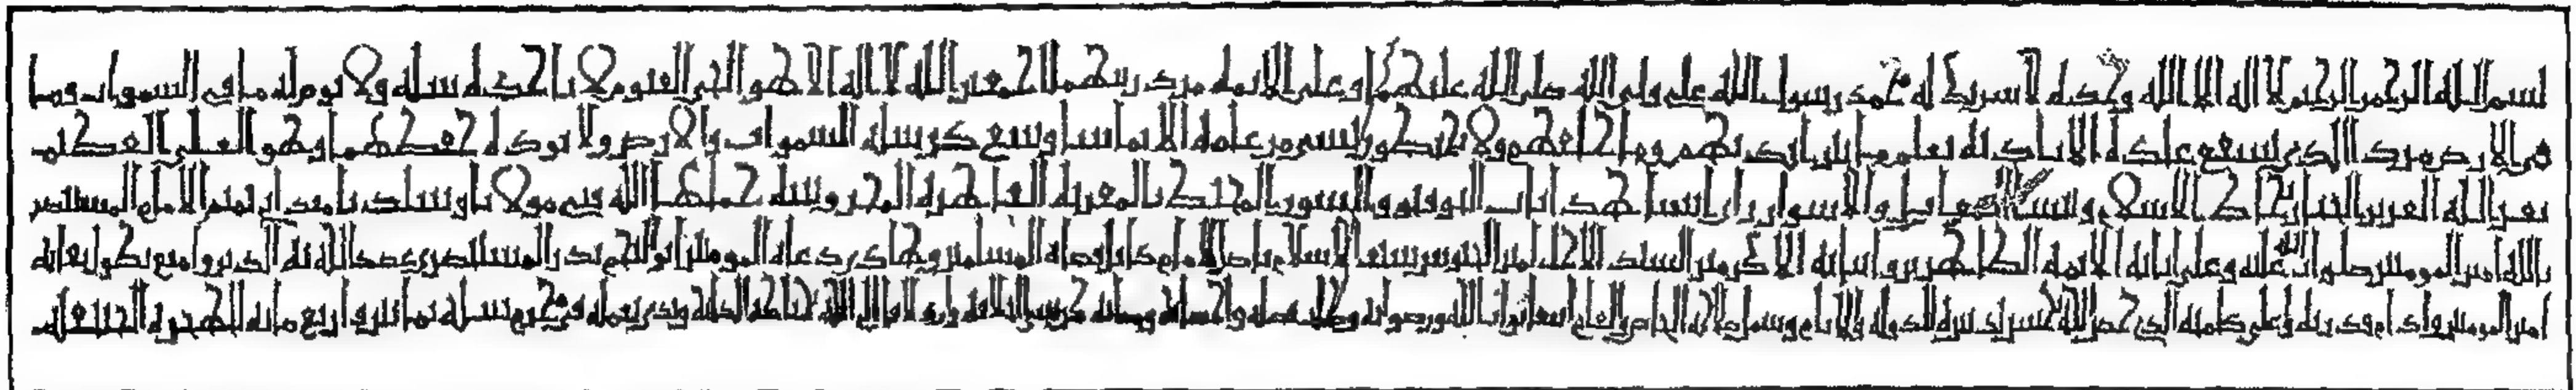 بسم الله الرحمن الرحيم لا اله الا الله وحده لا شريك له محمد رسول الله علي ولي الله صلى الله عليهما وعلى الائمة من ذريتهما اجمعين الله لا اله الا هو الحي القيوم لا تاخذه سنة ولا نوم له ما في السموات وما
في الارض من ذا الذي يشفع عنده الا باذنه يعلم ما بين ايديهم وما خلفهم ولا يحيطون بشيء من علمه الا بما شا وسع كرسيه السموات والارض ولا يوده حفظهما وهو العلي العظيم
بعز الله العزيز الجبار يحاط الاسلام وتنشا المعاقل والاسوار انشا هذا باب التوفيق والسور المحيط بالمعزية القاهرة المحروسة حماها الله فتى مولانا وسيدنا معد ابي تميم الامام المستنصر
بالله امير المومنين صلوات الله عليه وعلى ابائه الائمة الطاهرين وابنائه الاكرمين السيد الاجل امير الجيوش سيف الاسلام ناصر الامام كافل قضاة المسلمين وهادي دعاة المومنين ابو النجم بدر المستنصري عضد الله به الدين وامتع بطول بقائه
امير المومنين وادام قدرته واعلى كلمته الذي حصن الله بحسن تدبيره الدولة والانام وشمل صلاحه الخاص والعام ابتغا ثواب الله ورضوانه وطلب فضله واحسانه وصيانة كرسي الخلافة وازدلافا الى الله بحياطة الكافة وبدي بعمله في محرم سنة ثمانين واربع مائة الهجرة الحنيفية